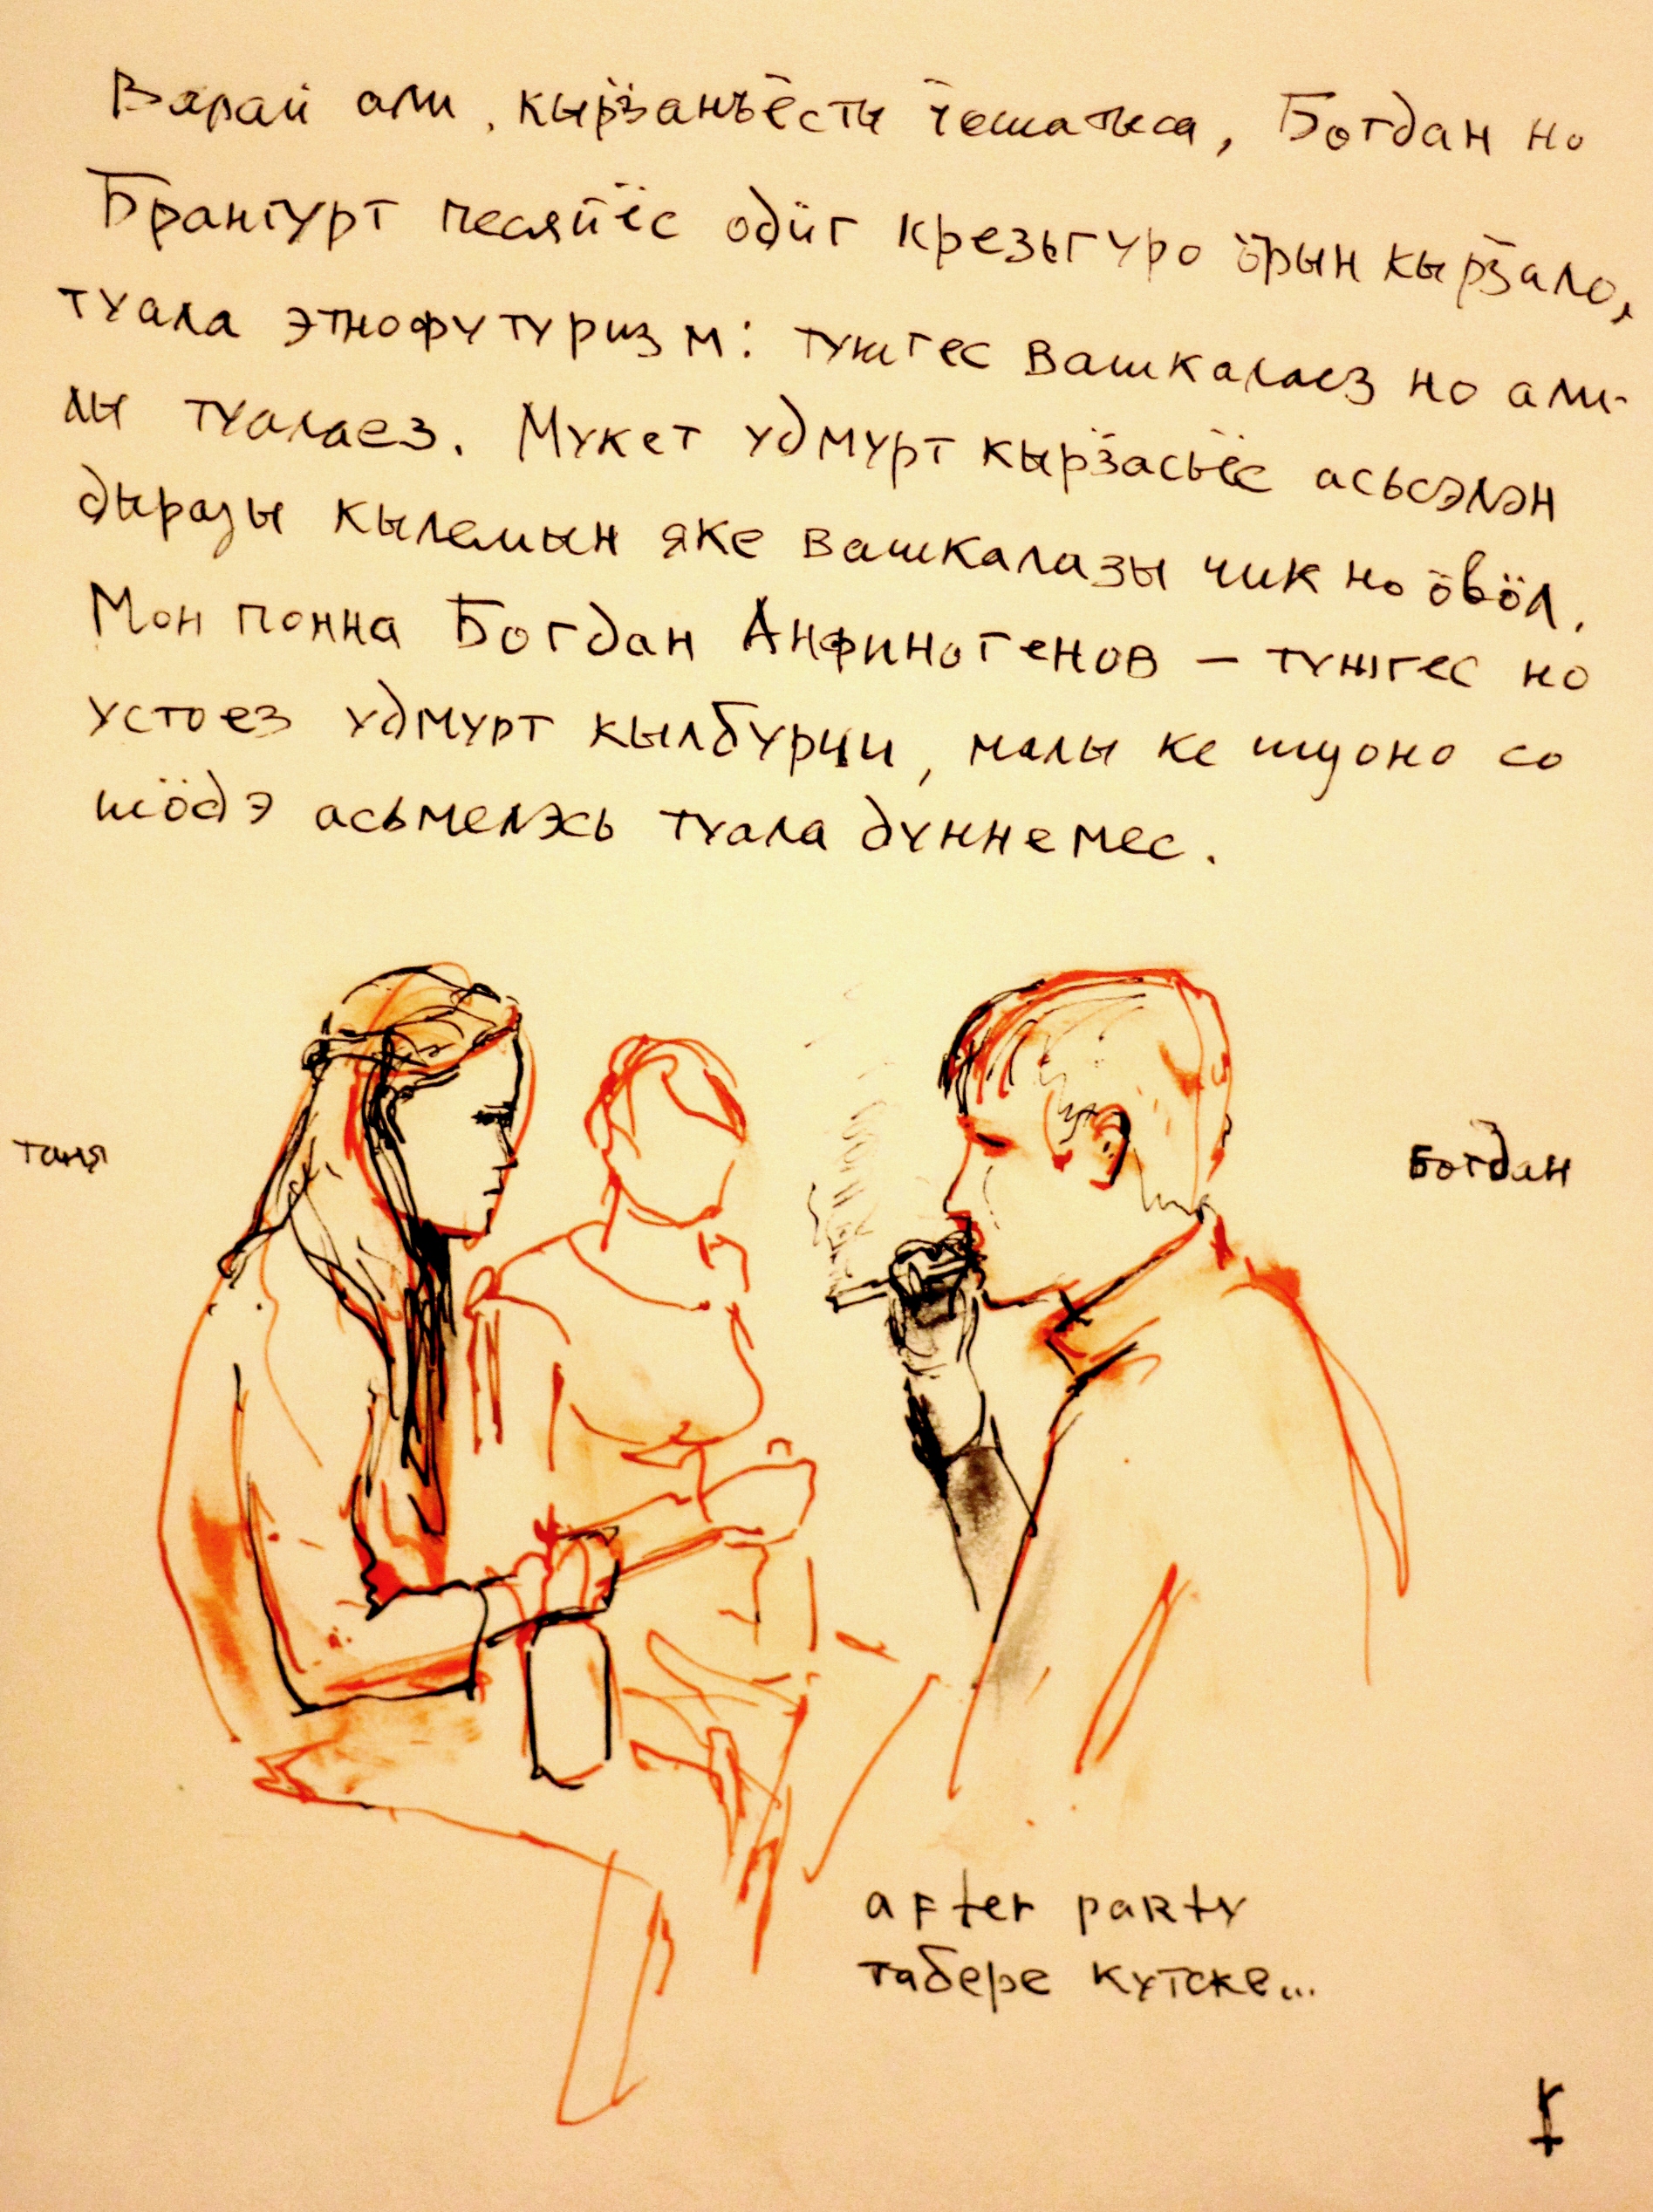 Варай али, кырӟанъёсты ӵошатыса, Богдан но
Брангурт песяйёс одӥг крезьгуро ӧрын кырӟало,
туала этнофутуризм: тужгес вашкалаез но али-
лы туалаез. Мукет удмурт кырӟасьёс асьсэлэн
дыразы кылемын яке вашкалазы чик но ӧвӧл.
Мон понна Богдан Анфиногенов – тужгес но
устоез удмурт кылбурчи, малы ке шуоно со
шӧдэ асьмелэсь туала дуннемес.
таня
Богдан
after party
табере кутске...